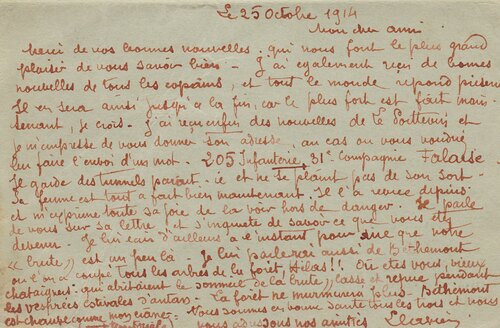 Le 25 Octobre 1914
Mon cher ami
Merci de vos bonnes nouvelles qui nous font le plus grand
plaisir de vous savoir bien - J'ai également reçu de bonnes
nouvelles de tous les copains, et tout le monde répond présent
Il en sera ainsi jusqu'à la fin, car le plus fort est fait main
tenant, je crois. J'ai reçu enfin des nouvelles de Le Poittevin et
je m'empresse de vous donner son adresse au cas ou vous voudriez
lui faire l'envoi d'un mot - 205 Infanterie 31e Compagnie Falaise
Il garde des tunnels parait-il et ne se plaint pas de son sort -
Sa femme est tout à fait bien maintenant. Il l'a revue depuis
et m'exprime toute sa joie de la voir hors de danger. Il parle
de vous sur sa lettre et s'inquiète de savoir ce que vous êtes
devenu - Je lui écris d'ailleurs à l'instant pour que votre
"brute" est un peu là - Je lui parlerai aussi de Béthemont
ou l'on a coupé tous les arbres de la forêt, Hélas!! Où êtes vous, vieux
chataigniers qui abritaient le sommeil de la brute, lasse et repue pendant
les vesprées estivales d'antan - La forêt ne murmurera plus. Béthemont
est chauve comme mon crâne - Nous sommes en bonne santé tous trois et nous
vous adressons nos amitiés